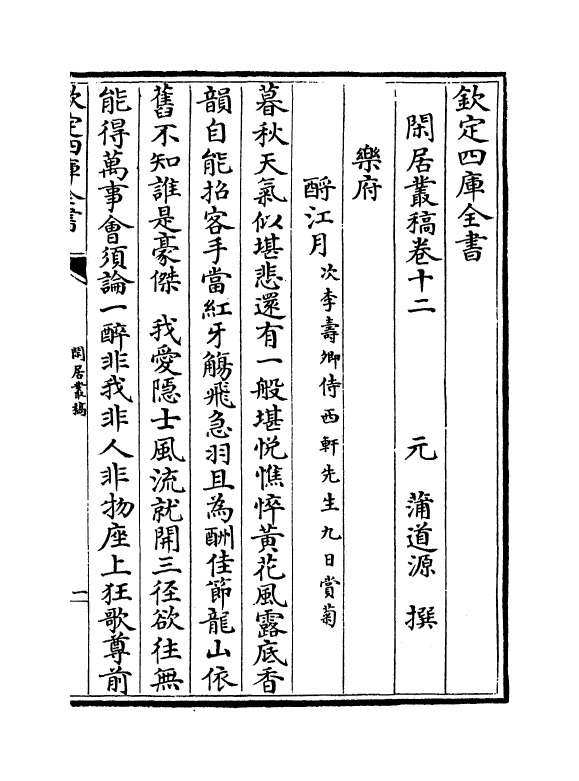 欽定四庫全書
閑居叢稿卷十二　　　元　蒲道源　撰
樂府
酹江月次李壽卿侍西軒先生九日賞菊
暮秋天氣似堪悲還有一般堪悦憔悴黃花風露底香
韻自能招客手當紅牙觴飛急羽且為酬佳節龍山依
舊不知誰是豪傑　我愛隠士風流就開三徑欲往無
能得萬事會須論一醉非我非人非物座上狂歌尊前
欽定四庫全書
閑居叢稿
一